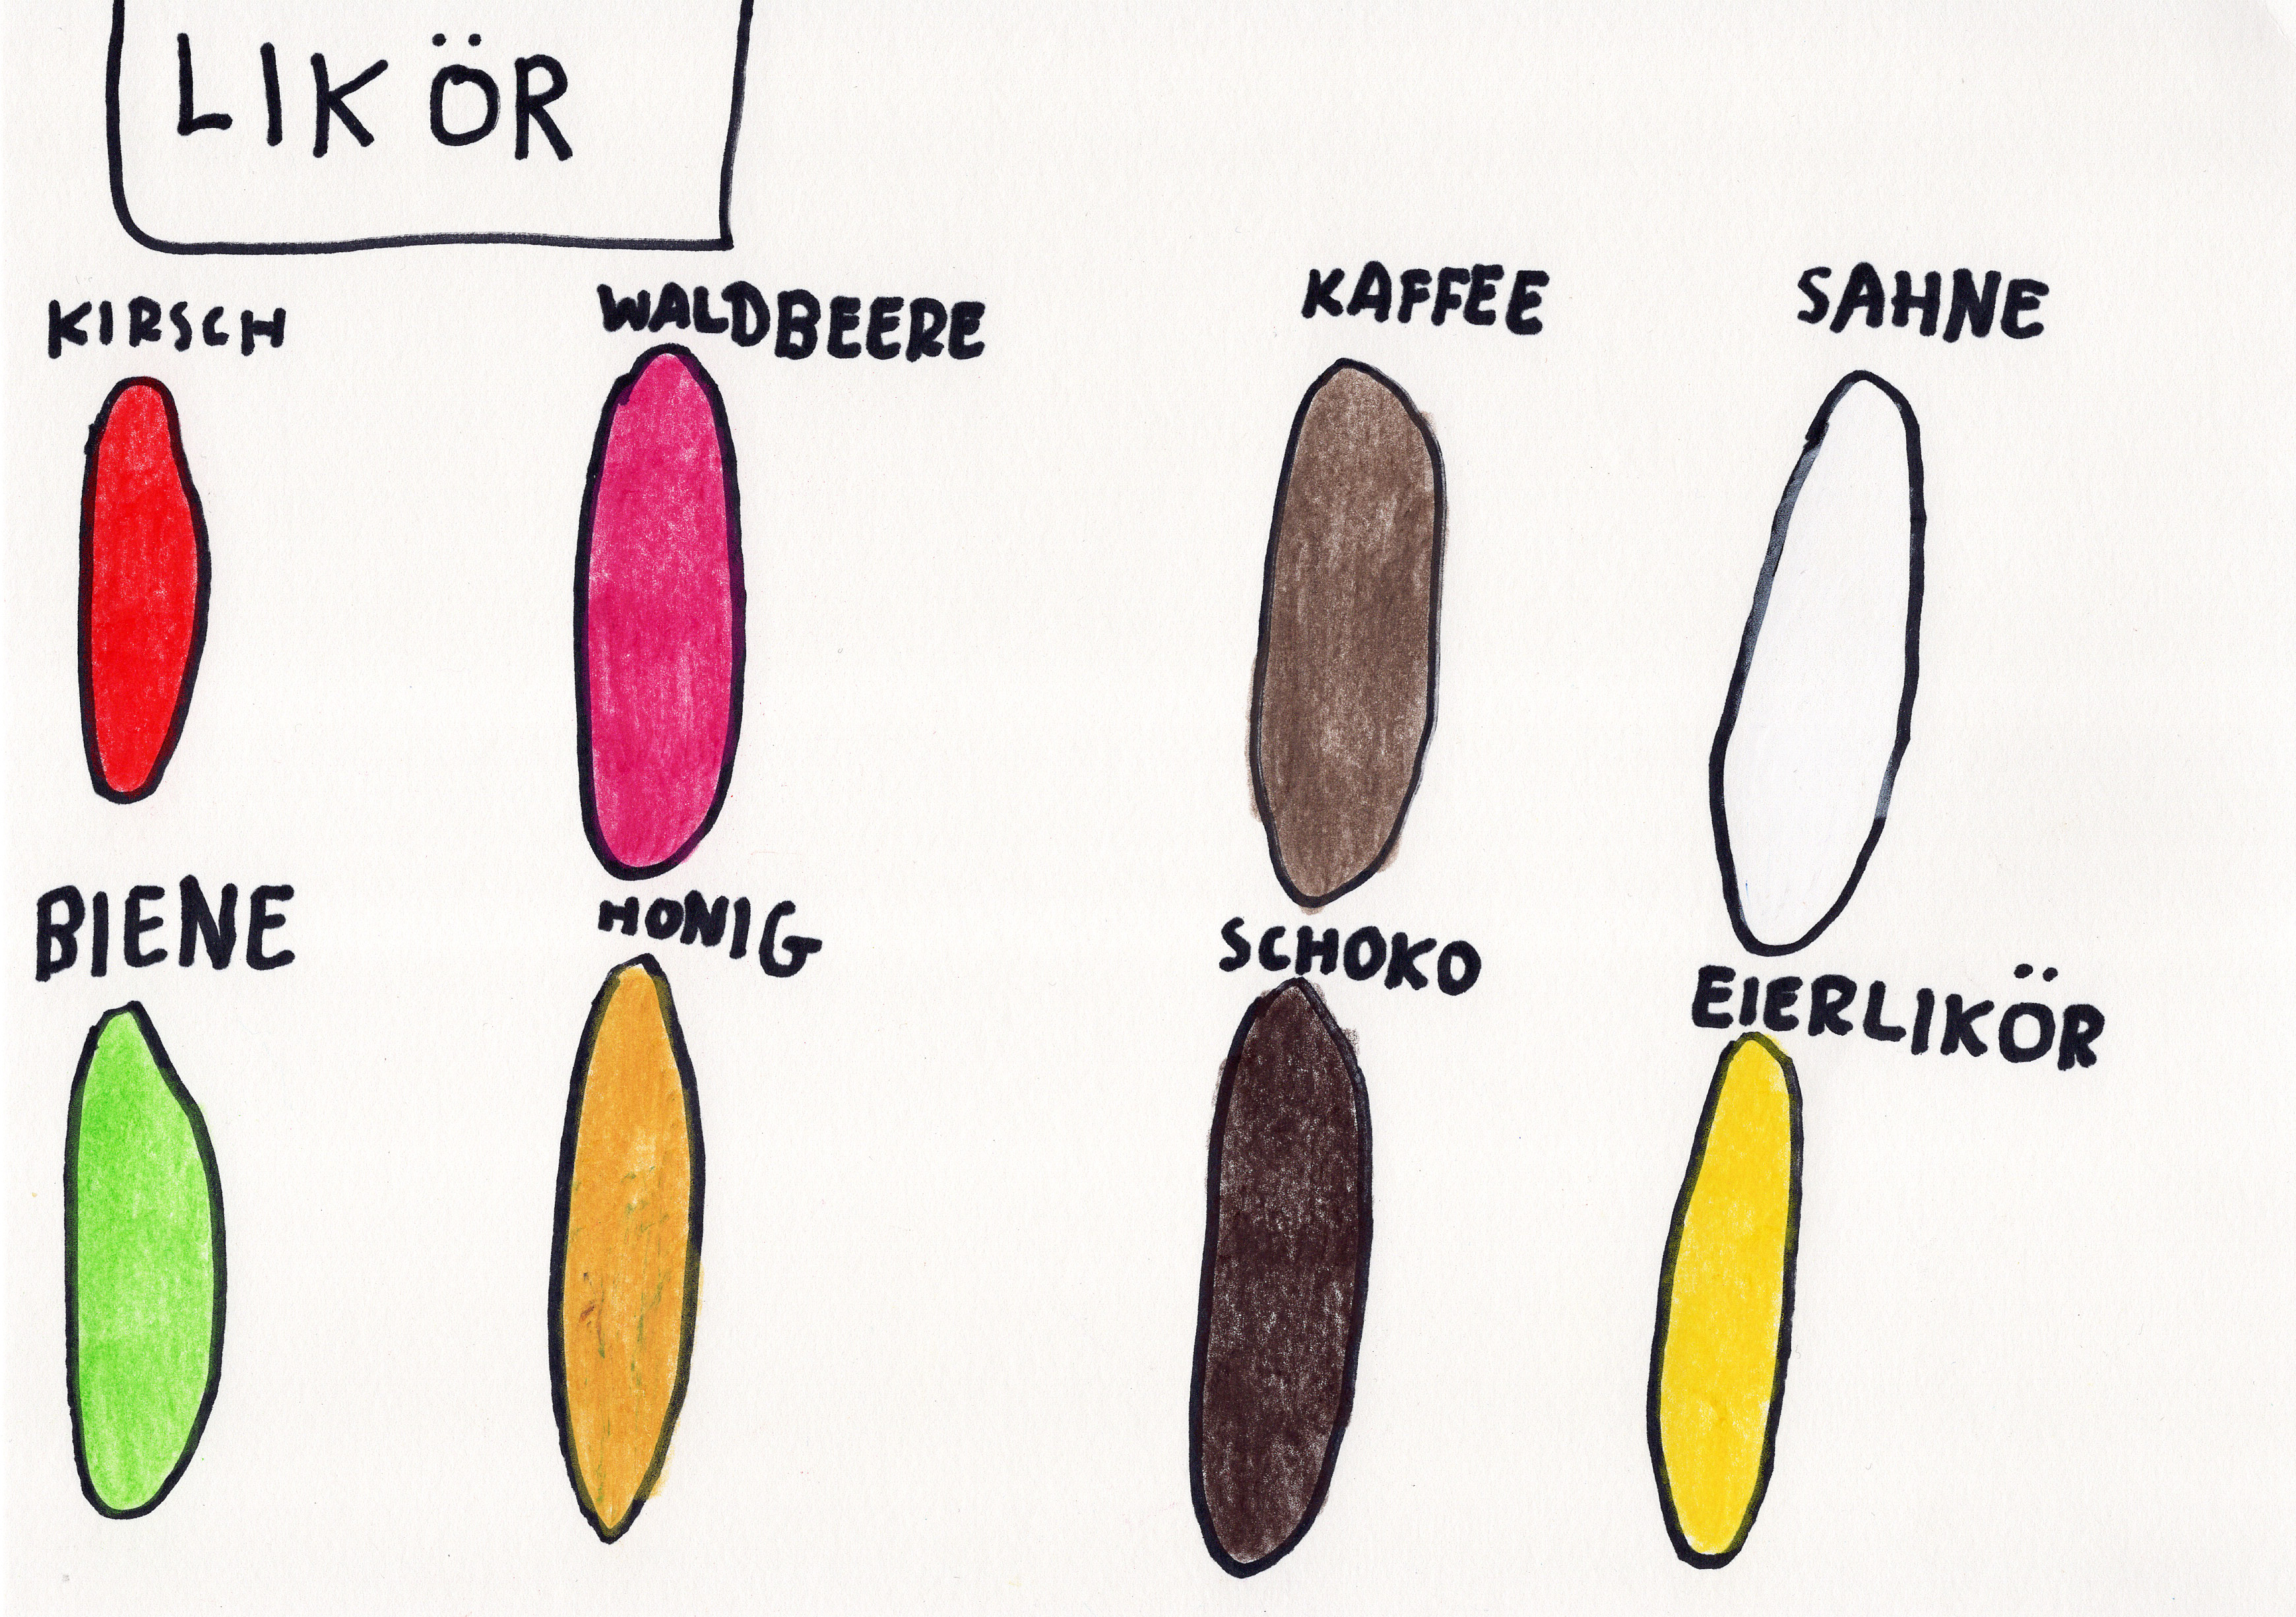 LIKÖR
KIRSCH
WALDBEERE
KAFFEE
SAHNE
BIENE
HONIG
SCHOKO
EIERLIKÖR